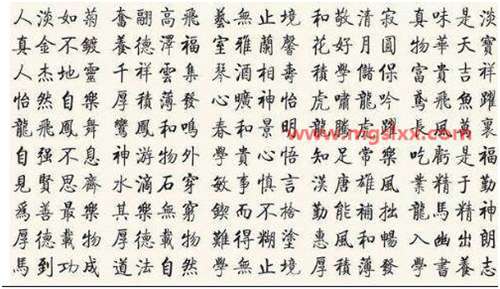 人淡如菊 奮翮高飛 藝無止境 和敬清寂 真味是淡
真金不鍍 養德澤福 室雅蘭馨 花好月圓 物華天寶
人杰地靈 千祥雲集 琴 相壽 學儲 富貴吉祥
怡然自樂 厚積薄發 心曠神怡 虎嘯龍吟 鳶飛魚躍
龍飛鳳舞 鸞鳳和鳴 春和景明 龍騰虎躍
www.mgslxx.com
自強不息 神游物外 學貴心悟 知足常樂 吃虧是福
見賢思齊 水滴石穿 敏事慎言 漢唐雄風 業精于勤
爲善最樂 其樂無窮 鍥而不捨 勤能補拙 龍馬精神
厚德載物 厚德載物 難得糊塗 惠風和暢 入幽出朗
馬到功成 道法自然 學無止境 厚積薄發 學書養志